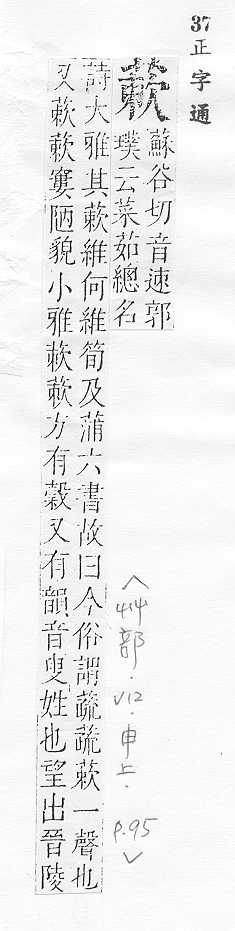 37正字通
蔌 蘇谷切音速郭
璞云菜茹總名
詩大雅其蔌維何維筍及蒲六書故曰今俗謂蔬蔬蔌一聲也
又蔌蔌窶陋貌小雅蔌蔌方有穀又有韻音叟姓也望出晉陵
〈艸部.v12.申上.P.95〉